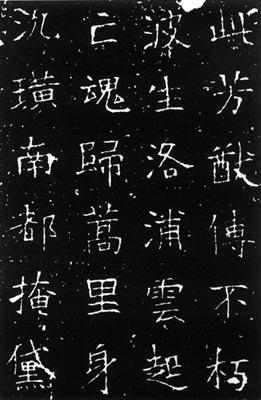 此芳猷傳不朽
波生洛浦雲起
亡魂歸蒿里身
沉璜南都掩黛